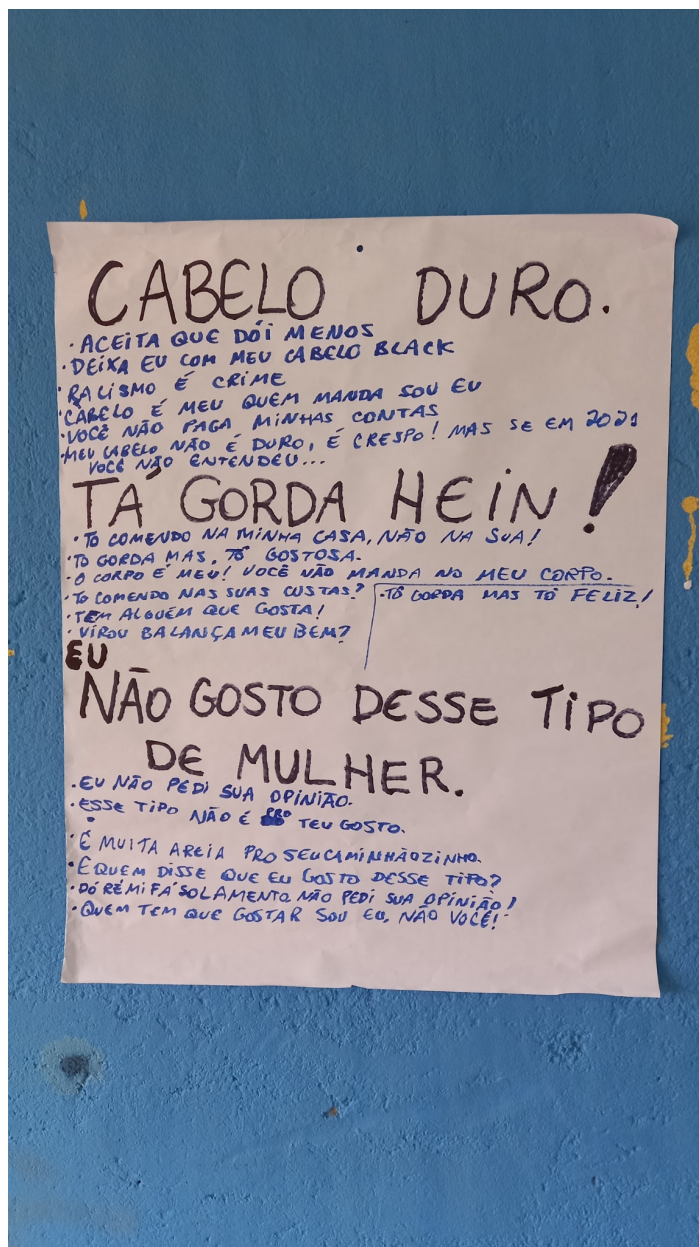 CABELO DURO.
· ACEITA QUE DÓI MENOS
· DEIXA EU COM MEU CABELO BLACK
· RACISMO É CRIME
· CABELO É MEU QUEM MANDA SOU EU
· VOCÊ NÃO PAGA MINHAS CONTAS
· MEU CABELO NÃO É DURO, É CRESPO! MAS SE EM 2021
VOCÊ NÃO ENTENDEU...
TÁ GORDA HEIN!
· TÔ COMENDO NA MINHA CASA, NÃO NA SUA!
· TÔ GORDA MAS, TÔ GOSTOSA.
· O CORPO É MEU! VOCÊ NÃO MANDA NO MEU CORPO.
· TÔ COMENDO NAS SUAS CUSTAS?
· TÔ GORDA MAS TÔ FELIZ!
· TEM ALGUÉM QUE GOSTA!
· VIROU BALANÇA MEU BEM?
EU
NÃO GOSTO DESSE TIPO
DE MULHER.
· EU NÃO PEDI SUA OPINIÃO.
· ESSE TIPO NÃO É TEU GOSTO.
· É MUITA AREIA PRO SEU CAMINHÃOZINHO.
· E QUEM DISSE QUE EU GOSTO DESSE TIPO?
· DÓ RÉ MI FÁ SOLAMENTO NÃO PEDI SUA OPINIÃO!
· QUEM TEM QUE GOSTAR SOU EU, NÃO VOCÊ!